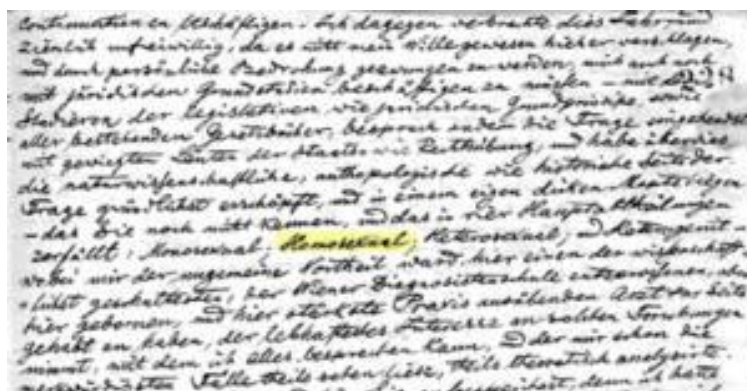 Continuation en beschäftigen. Ich dagegen verbrachte dies Jahr
ziemlich unfreiwillig, da es nicht mein Wille gewesen hieher verschlagen,
und durch persönliche Bedrohung gezwungen zu werden, mich auch noch
mit juridischen Grundstudien beschäftigen zu müssen – mit
Studieren der legislativen, wie juridischen Grundprincipe sowie
aller bestehenden Gesetzbücher, besprach zudem die Frage eingehendst
mit gewiegten Leuten der Staats- wie Rechtsübung, und habe überdies
die naturwissenschaftliche, anthropologische wie historische Seite der
Frage gründlichst erschöpft, und in einem eigen dicken
– das Sie noch nicht kennen, und das in vier Hauptabtheilungen
zerfällt: Monosexual, Homosexual, Heterosexual, und Heterogenit –
wobei mir der ungemeine Vortheil ward, hier einen der wissenschaft-
lichst geschultesten, der Wiener Diagnostikerschule entwachsenen, aber
hier gebornen, und hier stärkste Praxis ausübenden Arzt zur Seite
gehabt zu haben, der lebhaftestes Interesse an solchen Forschungen
nimmt, mit dem ich alles besprechen kann, und der mir schon die
Fälle theils sehen liess, theils theoretisch analysirte.